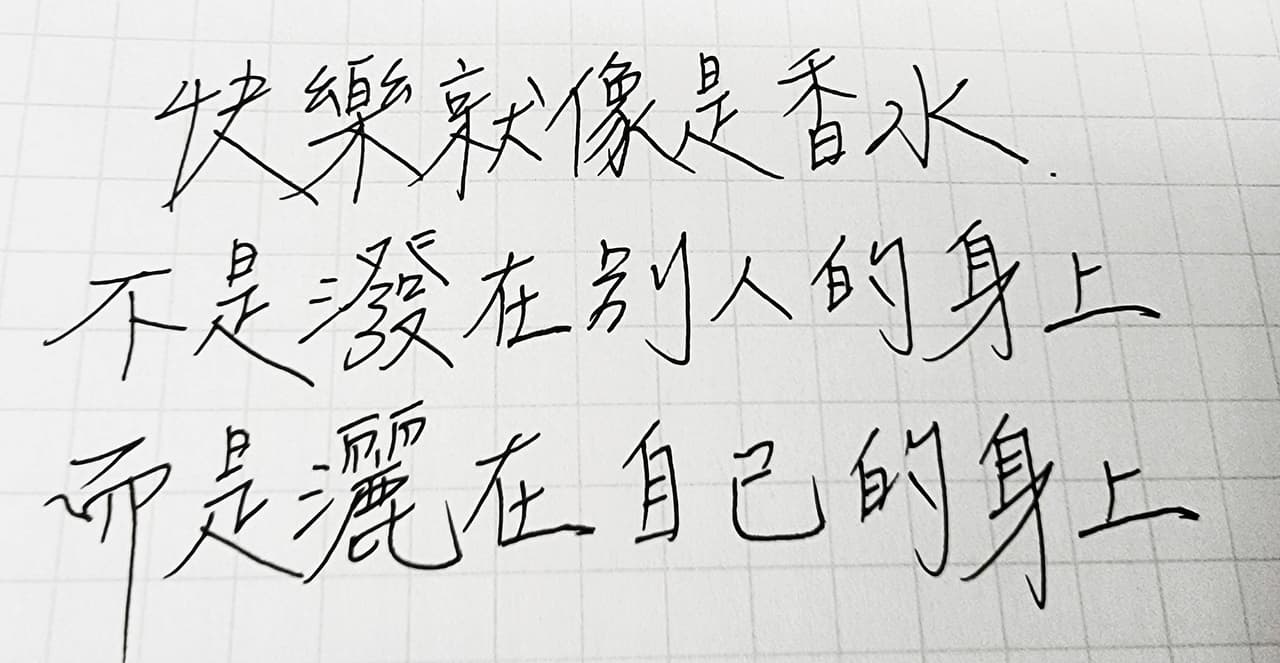 快樂就像是香水.
不是潑在别人的身上
而是灑在自己的身上